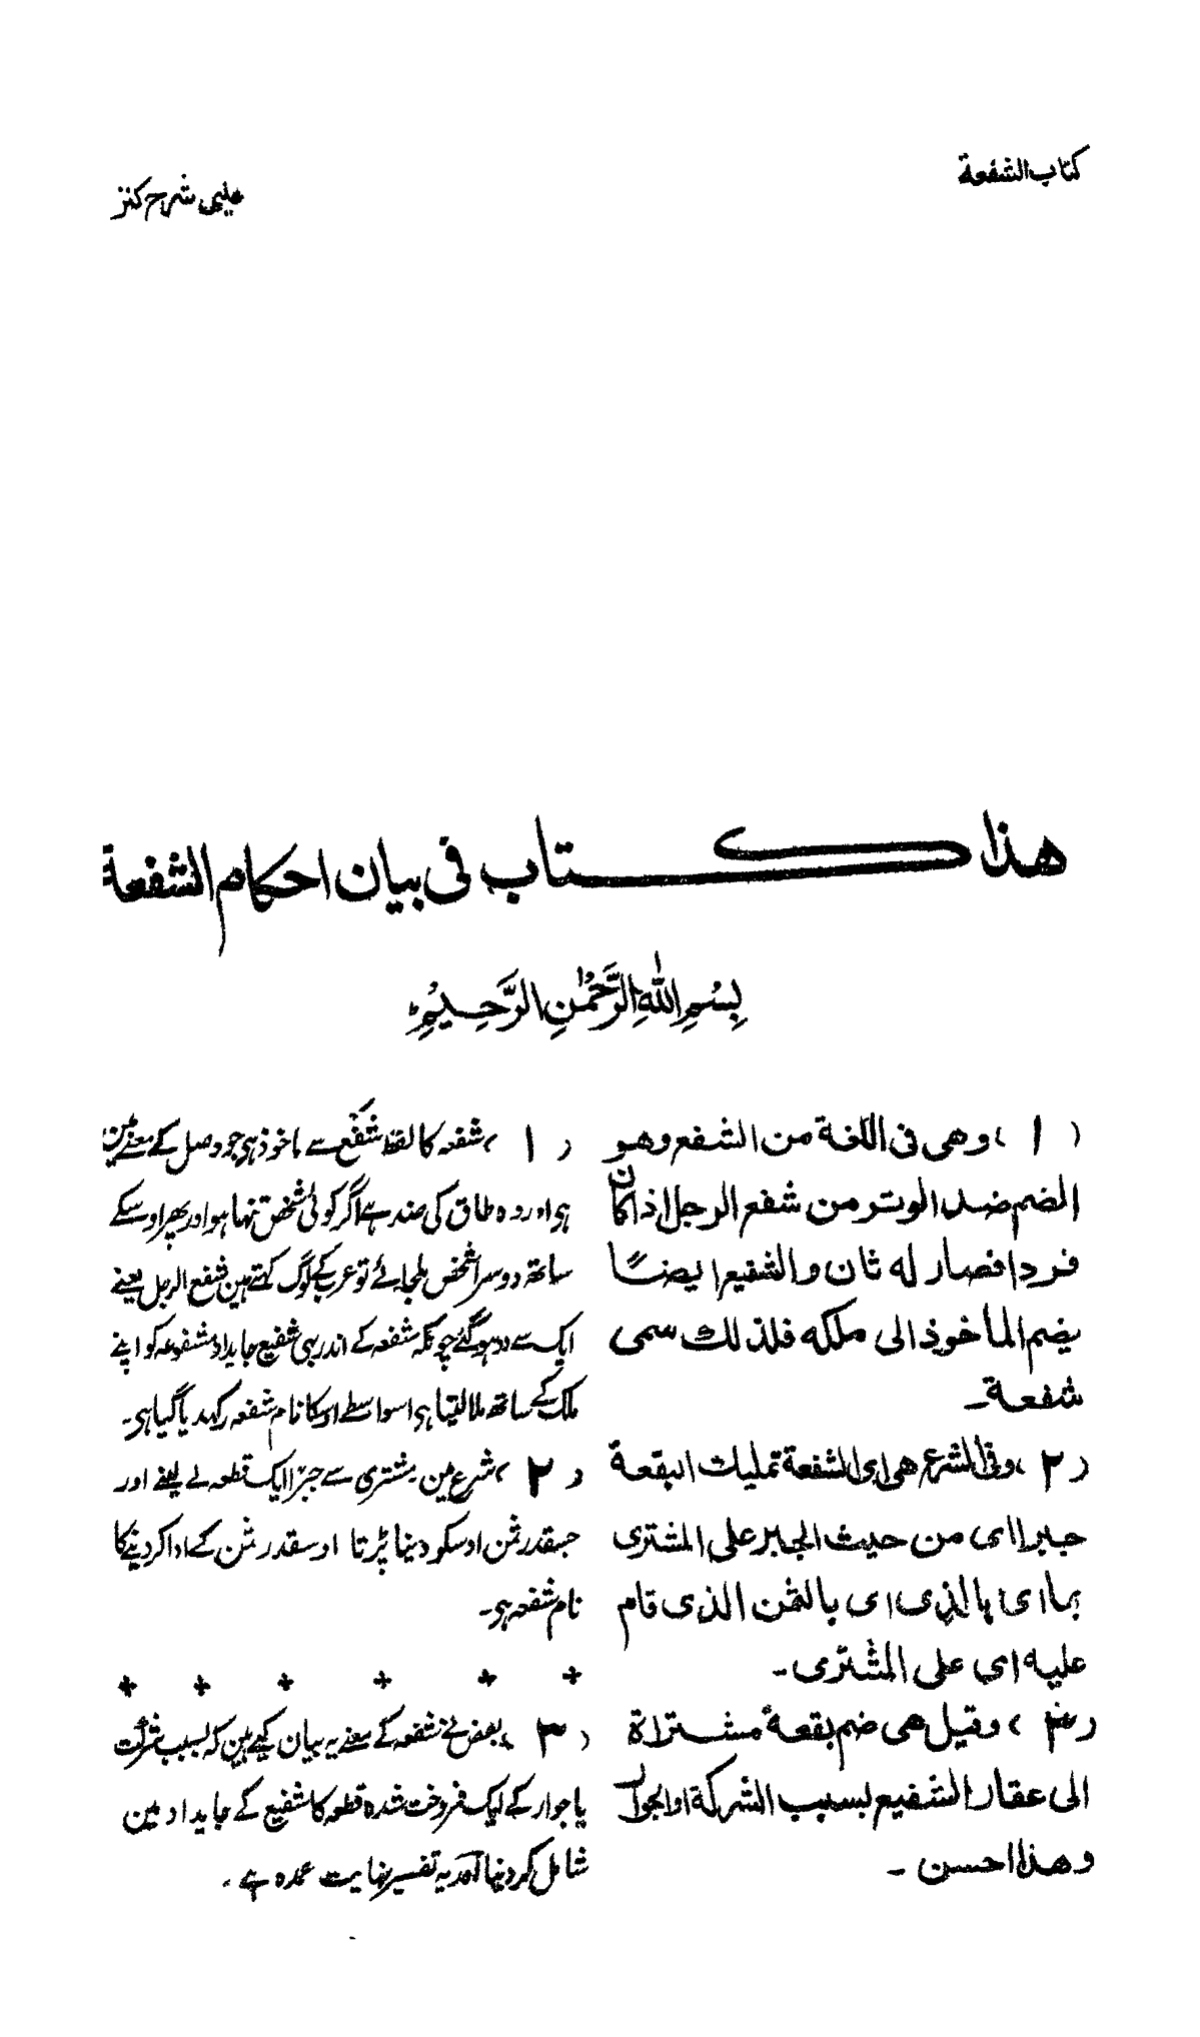 كتاب الشفعة
علیمی شرح کنز
هذا كتاب فى بيان احكام الشفعة
بِسْمِ اللهِ الرَّحْمٰنِ الرَّحِيْمِ
(١) وهى فى اللغة من الشفع وهو
الضم ضد الوتر من شفع الرجل اذا كان
فردا فصار له ثان والشفيع ايضًا
يضم المأخوذ الى ملكه فلذلك سمى
شفعة۔
(٢) وفى الشرع هى اى الشفعة تمليك البقعة
جبرا اى من حيث الجبر على المشترى
بما اى بالذى اى بالثمن الذى قام
عليه اى على المشترى۔
(٣) وقيل هى ضم بقعة مشتراة
الى عقار الشفيع بسبب الشركة او الجوار
وهذا احسن۔
(۱) شفعہ کا لفظ شَفْع سے ماخوذ ہی جو وصل کے معنے مین
ہی اور وہ طاق کی ضد ہے اگر کوئی شخص تنہا ہو اور پھر اوسکے
ساتھ دوسرا شخص ملجائے تو عرب کے لوگ کہتے ہین شفع الرجل یعنے
ایک سے دو ہو گئے چونکہ شفعہ کے اندر ہی شفیع جایداد مشفوعہ کو اپنے
ملک کے ساتھ ملا لیتا ہی اسواسطے اوسکا نام شفعہ رکہدیا گیا ہی۔
(۲) شرع مین مشتری سے جبرًا ایک قطعہ لے لینے اور
جسقدر ثمن اوسکو دینا پڑتا اوسقدر ثمن کے ادا کر دینے کا
نام شفعہ ہی۔
(۳) بعض نے شفعہ کے معنے یہ بیان کیے ہین کہ بسبب شرکت
یا جوار کے ایک فروخت شدہ قطعہ کا شفیع کے جایداد مین
شامل کر دینا اور یہ تفسیر نہایت عمدہ ہے۔